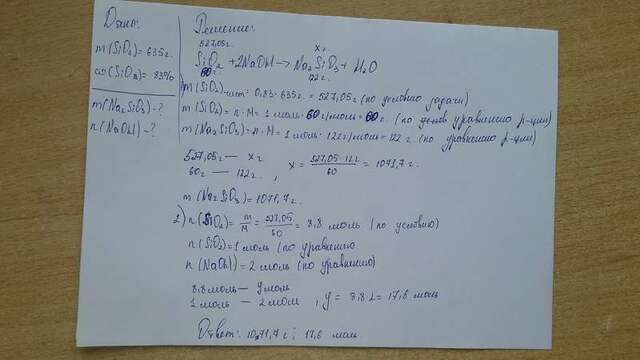 Дано:
m(SiO2) = 635г.
ω(SiO2) = 83%
m(Na2SiO3) - ?
n(NaOH) - ?
Решение:
527,05г. x г.
SiO2 + 2NaOH → Na2SiO3 + H2O
60г 122г.
1) m(SiO2)чист. = 0,83 · 635г. = 527,05г (по условию задачи)
m(SiO2) = n · M = 1 моль · 60 г/моль = 60 г. (по уравнению р-ции)
m(Na2SiO3) = n · M = 1 моль · 122 г/моль = 122 г. (по уравнению р-ции)
527,05г — x г
60г — 122г. , x = 527,05 · 122 / 60 = 1071,7 г.
m(Na2SiO3) = 1071,7 г.
2) n(SiO2) = m/M = 527,05/60 = 8,8 моль (по условию)
n(SiO2) = 1 моль (по уравнению
n(NaOH) = 2 моль (по уравнению)
8,8 моль — y моль
1 моль — 2 моль , y = 8,8·2 = 17,6 моль
Ответ: 1071,7 г; 17,6 моль